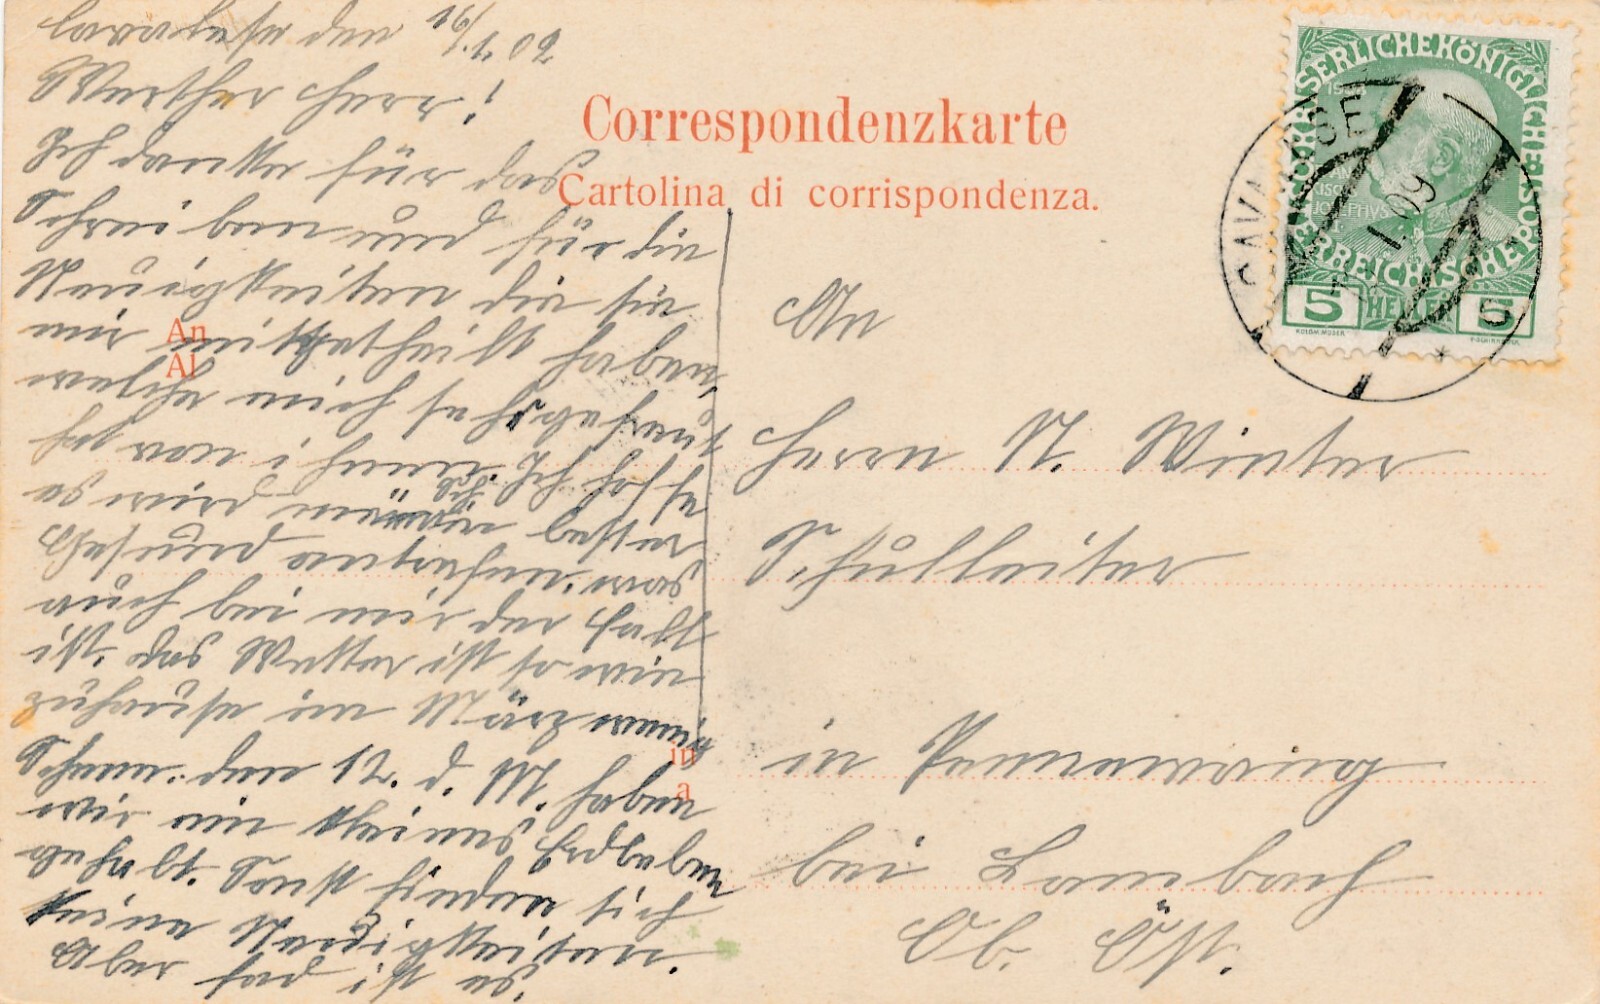 Cavalese den 16/1 09
Werther Herr!
Ich danke für das
Schreiben und für die
Neuigkeiten die sie
mir mitgetheilt haben,
welche mich sehr gefreut
hat von ihnen. Ich hoffe
es wird ihnen besser
Gesund antrefen. was
auch bei mir der Fall
ist. das Wetter ist so wie
zuhause im März wenig
Schnee. den 12. d. M. haben
wir ein kleines Erdbeben
gehabt. Sonst finden sich
keine Neuigkeiten.
Aber fad ist es.
Correspondenzkarte
Cartolina di corrispondenza.
An
Al
in
a
An
Herrn N. Winter
Schulleiter
in Pennewang
bei Lambach
Ob. Öst.
KAISERLICHE KÖNIGLICHE
ÖSTERREICHISCHE POST
5 HELLER 5
CAVALESE
I. 09